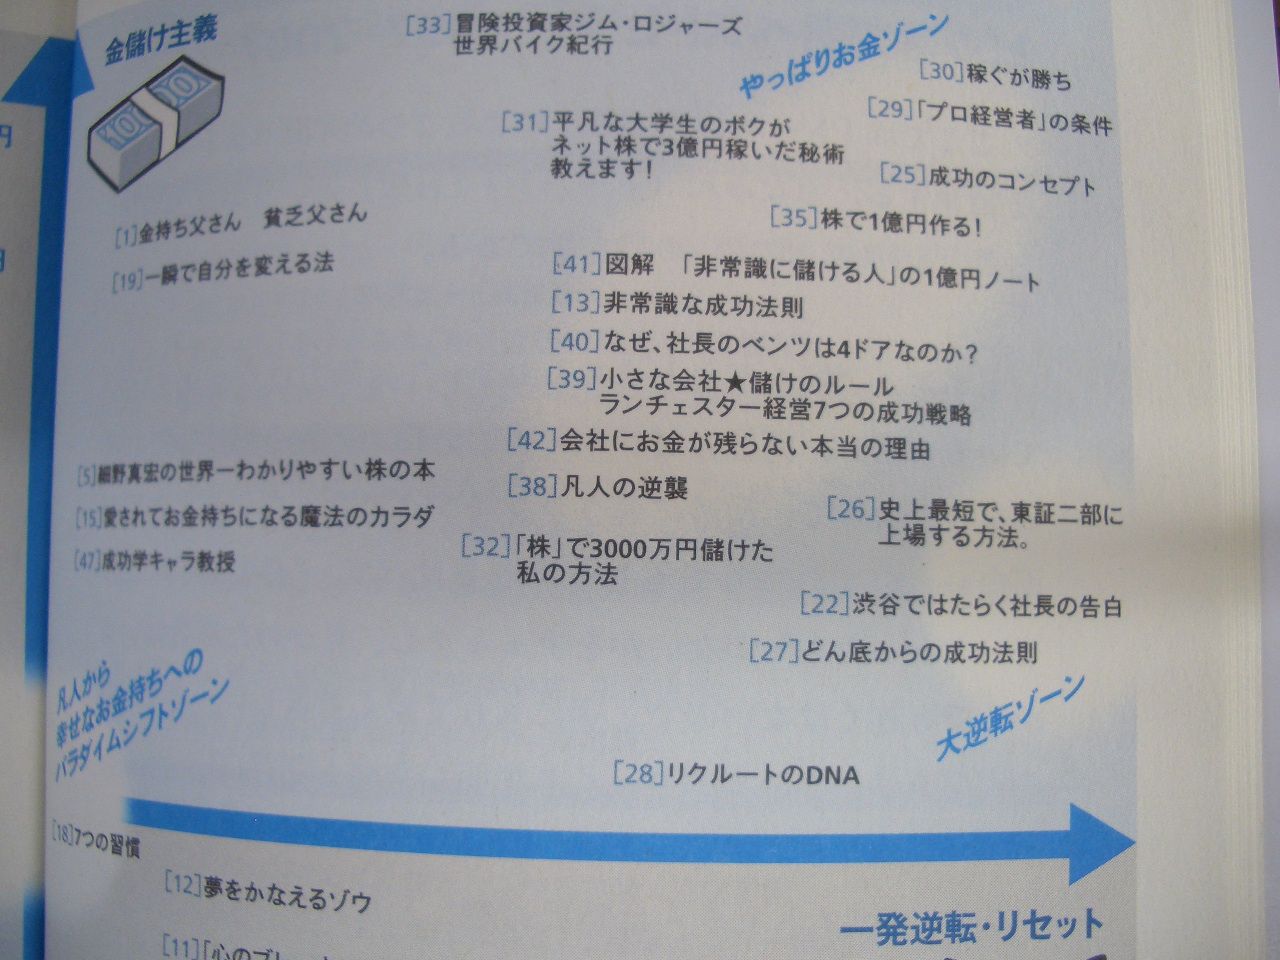 金儲け主義
[33]冒険投資家ジム・ロジャーズ
世界バイク紀行
やっぱりお金ゾーン
[30]稼ぐが勝ち
[29]「プロ経営者」の条件
[31]平凡な大学生のボクが
ネット株で3億円稼いだ秘術
教えます!
[25]成功のコンセプト
[1]金持ち父さん 貧乏父さん
[35]株で1億円作る!
[19]一瞬で自分を変える法
[41]図解 「非常識に儲ける人」の1億円ノート
[13]非常識な成功法則
[40]なぜ、社長のベンツは4ドアなのか?
[39]小さな会社★儲けのルール
ランチェスター経営7つの成功戦略
[42]会社にお金が残らない本当の理由
[5]細野真宏の世界一わかりやすい株の本
[38]凡人の逆襲
[26]史上最短で、東証二部に
上場する方法。
[15]愛されてお金持ちになる魔法のカラダ
[32]「株」で3000万円儲けた
私の方法
[47]成功学キャラ教授
[22]渋谷ではたらく社長の告白
[27]どん底からの成功法則
凡人から
幸せなお金持ちへの
パラダイムシフトゾーン
大逆転ゾーン
[28]リクルートのDNA
[18]7つの習慣
[12]夢をかなえるゾウ
一発逆転・リセット
[11]「心のブレ
円
円